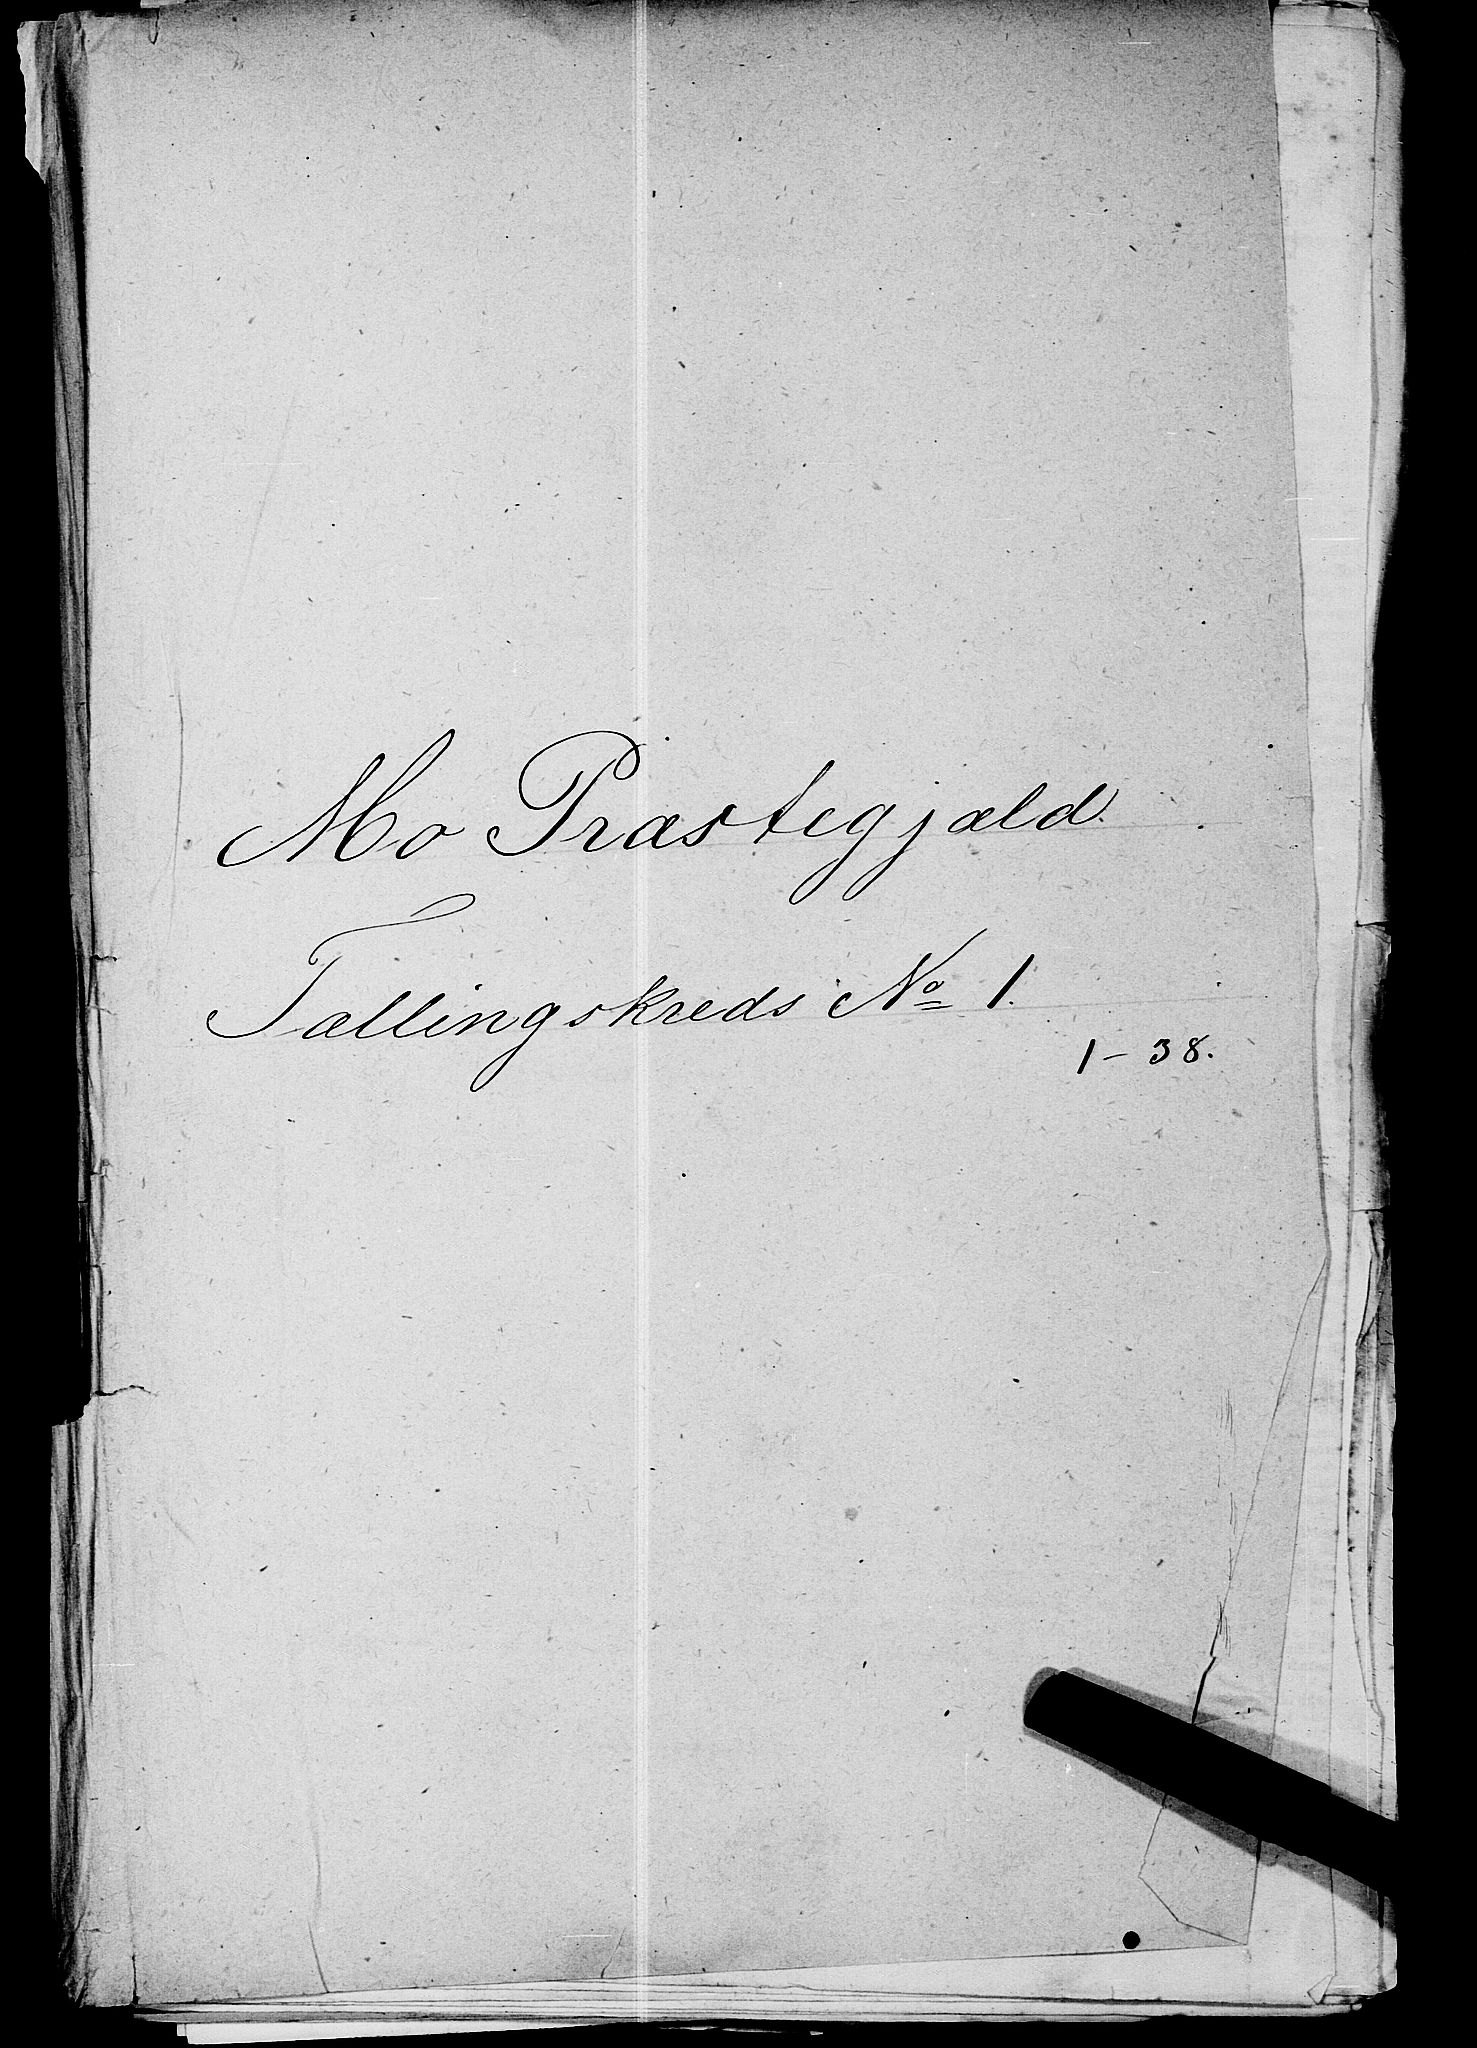 Mo Præstegjæld.
Tællingskreds No 1.
1 – 38.